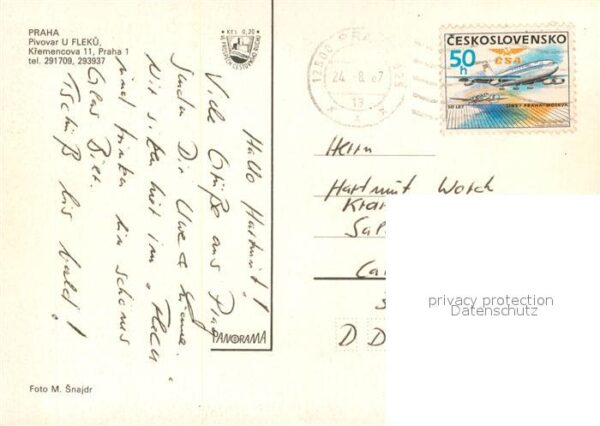 PRAHA
Pivovar U FLEKŮ,
Křemencova 11, Praha 1
tel. 291709, 293937
Kčs 0,20
Hallo Hartmut!
Viele Grüße aus Prag
senden Dir Uwe &
Wir sitzen mit im "Fleku"
und trinken ein schönes
Glas Bier.
Tschüß bis bald!
PANORAMA
Foto M. Šnajdr
24.-8.87
13
ČESKOSLOVENSKO
50 h
ČSA
50 LET LINKY PRAHA-MOSKVA
Herrn
Hartmut Worch
Kran
Sal
Ca
D D
privacy protection
Datenschutz